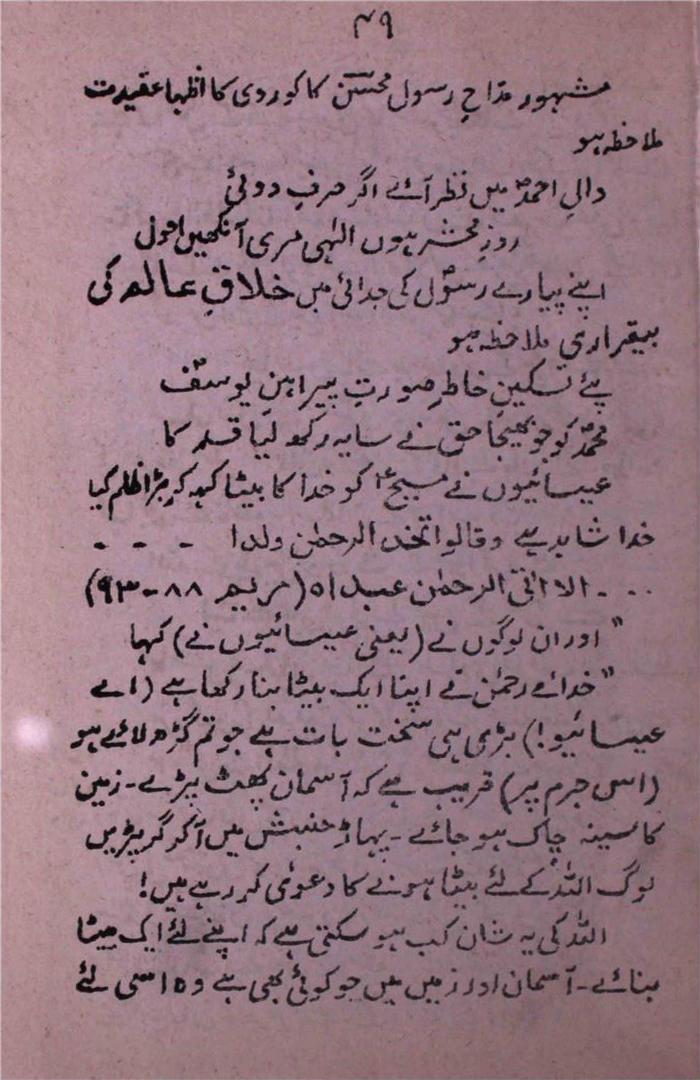 ۴۹
مشہور مداحِ رسول محسنؔ کاکوردی کا اظہار عقیدت
ملاحظہ ہو
والیِ احمدؐ میں نظر آئے اگر صرفِ دوئی
روزِ محشر ہوں الٰہی مری آنکھیں احول
اپنے پیارے رسولؐ کی جدائی میں خلاقِ عالم کی
بیقراری ملاحظہ ہو
پئے تسکینِ خاطر صورتِ پیراہنِ یوسفؑ
محمدؐ کو جو بھیجا حق نے سایہ رکھ لیا قد کا
عیسائیوں نے مسیحؑ کو خدا کا بیٹا کہہ کر بڑا ظلم کیا
خدا شاہد ہے وقالوا اتخذ الرحمٰن ولدا - - -
- - - الا اتی الرحمٰن عبداہ (مریم ۸۸-۹۳)
"اور ان لوگوں نے (یعنی عیسائیوں نے) کہا
"خدائے رحمٰن نے اپنا ایک بیٹا بنا رکھا ہے (اے
عیسائیو!) بڑی ہی سخت بات ہے جو تم گڑھ لائے ہو
(اس جرم پر) قریب ہے کہ آسمان پھٹ پڑے۔ زمین
کا سینہ چاک ہو جائے۔ پہاڑ جنبش میں آ کر گر پڑیں
لوگ اللہ کے لئے بیٹا ہونے کا دعویٰ کر رہے ہیں!
اللہ کی یہ شان کب ہو سکتی ہے کہ اپنے لئے ایک بیٹا
بنائے۔ آسمان اور زمیں میں جو کوئی بھی ہے وہ اسی لئے